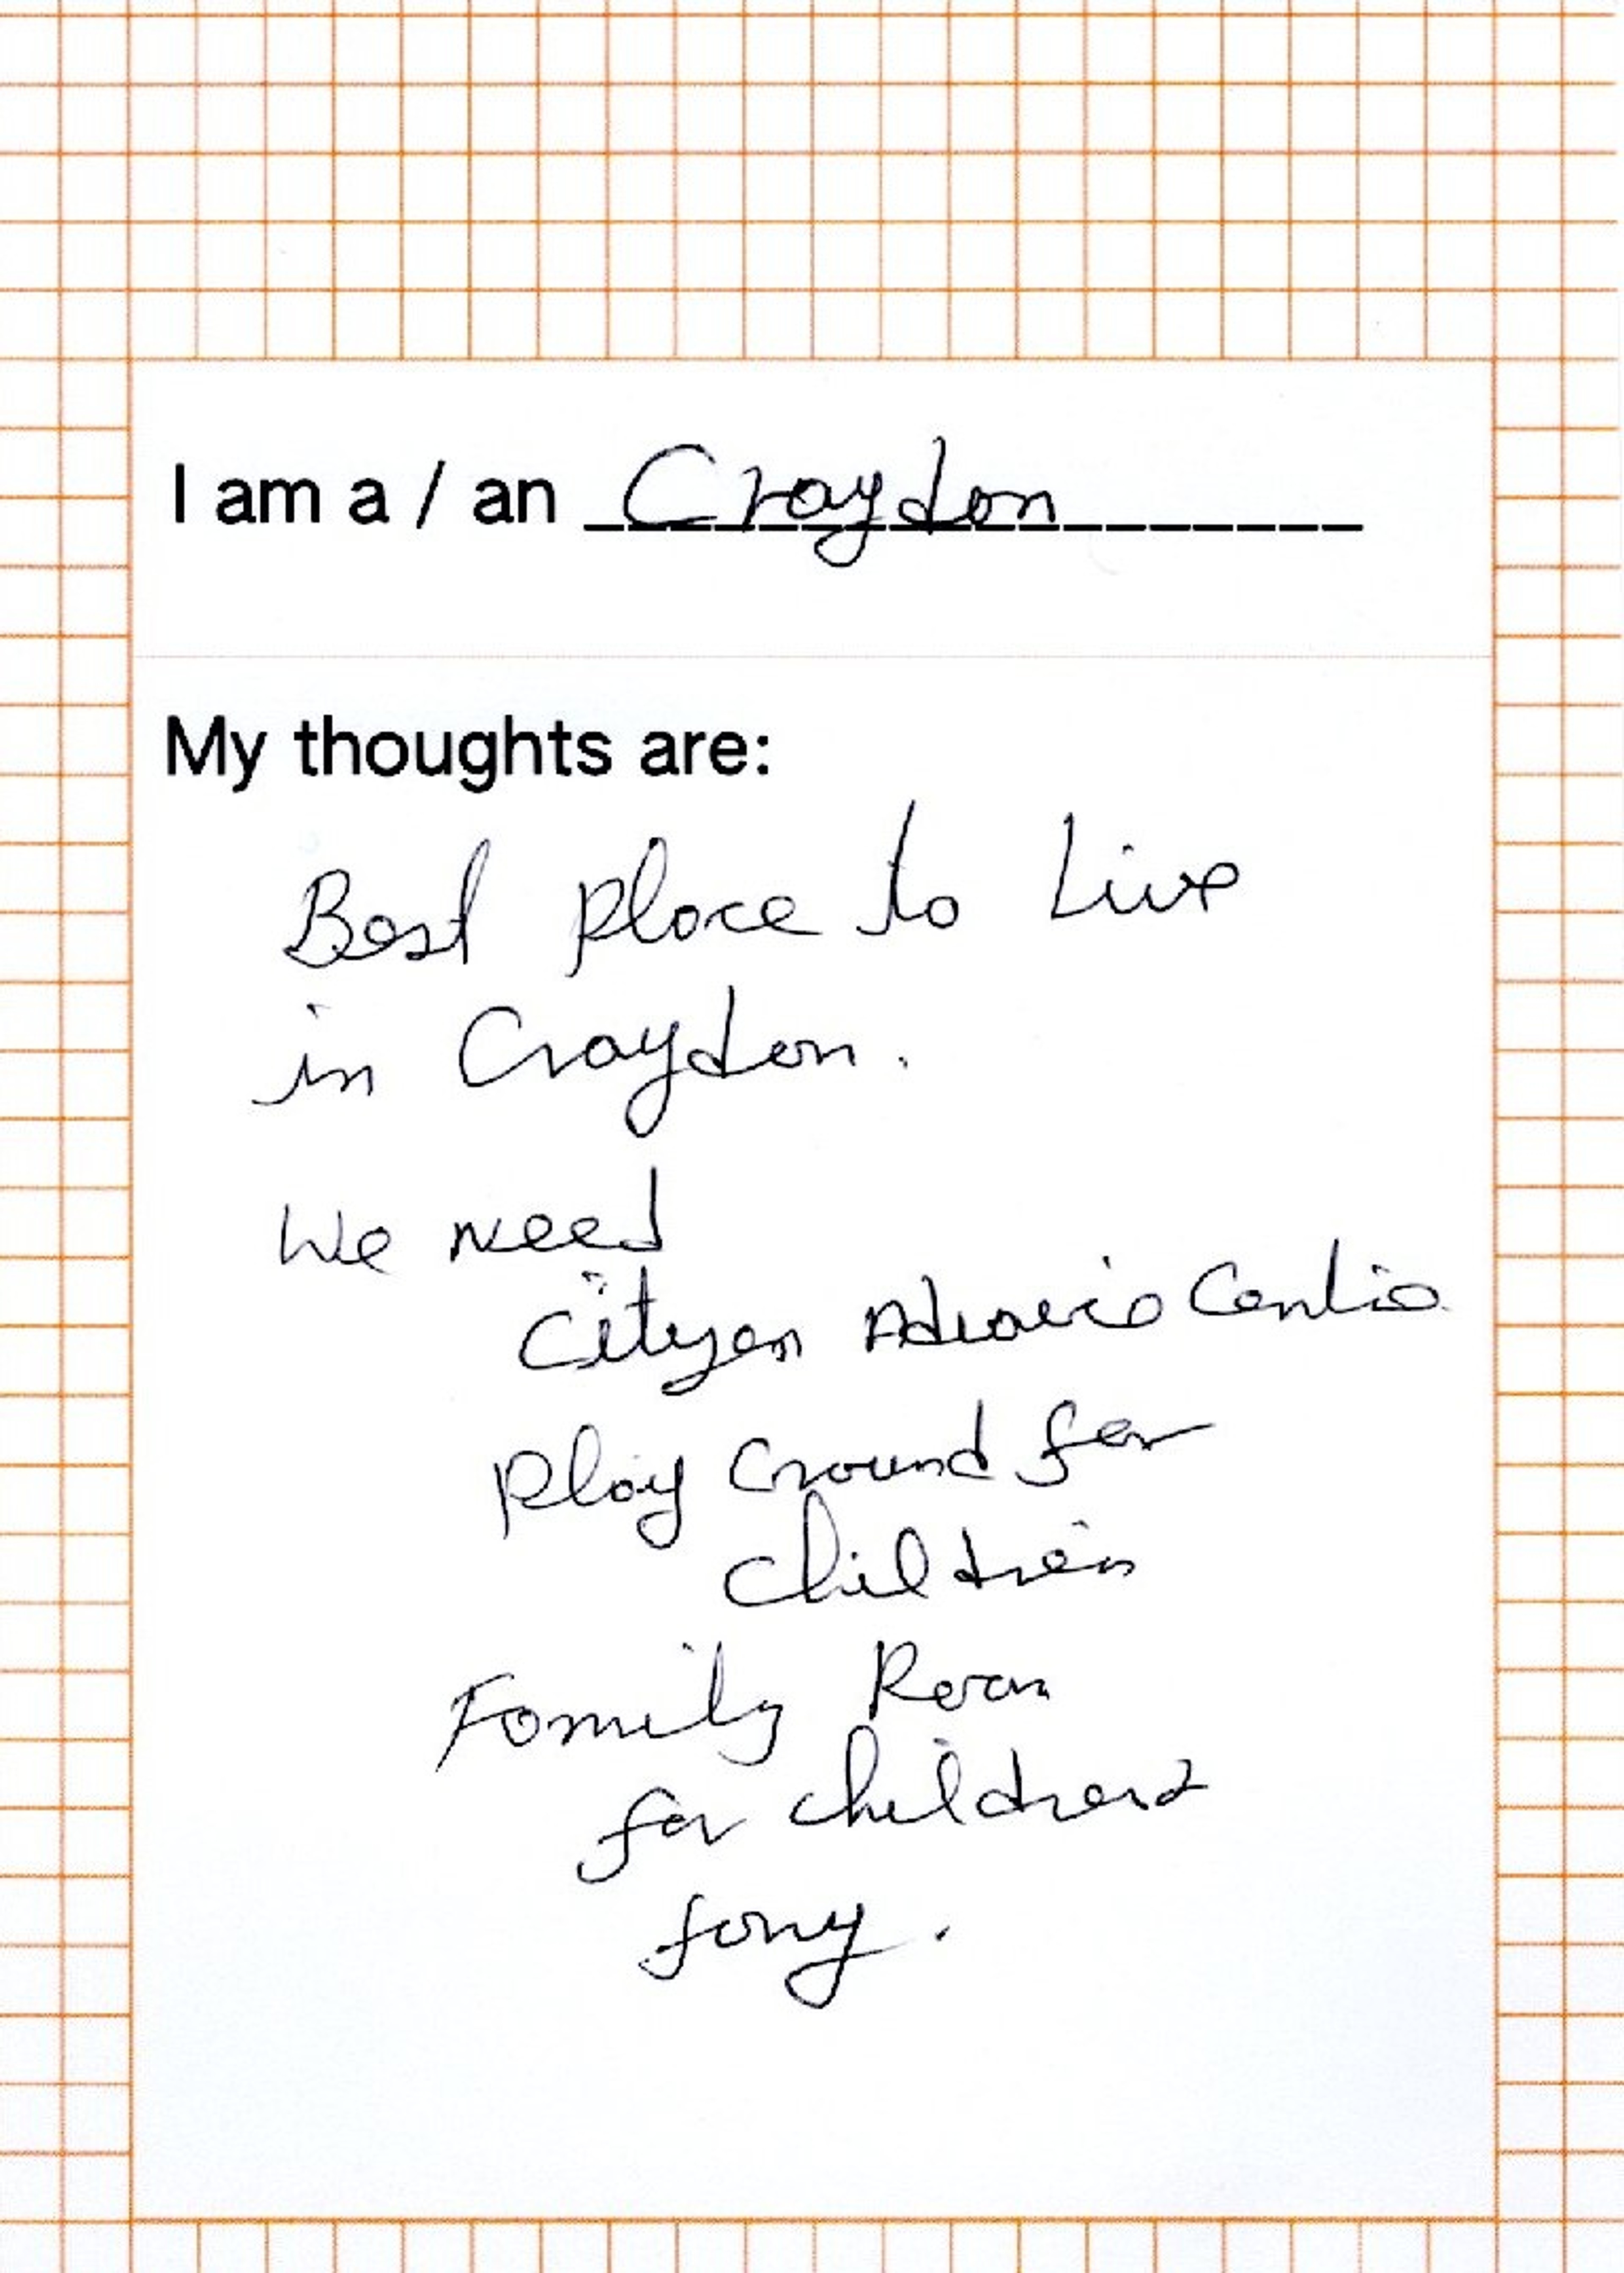 I am a / an Craydon
My thoughts are:
Best place to Live
in Craydon.
We need
Cityzen Advaice
Play Ground for
children
Family Room
for children